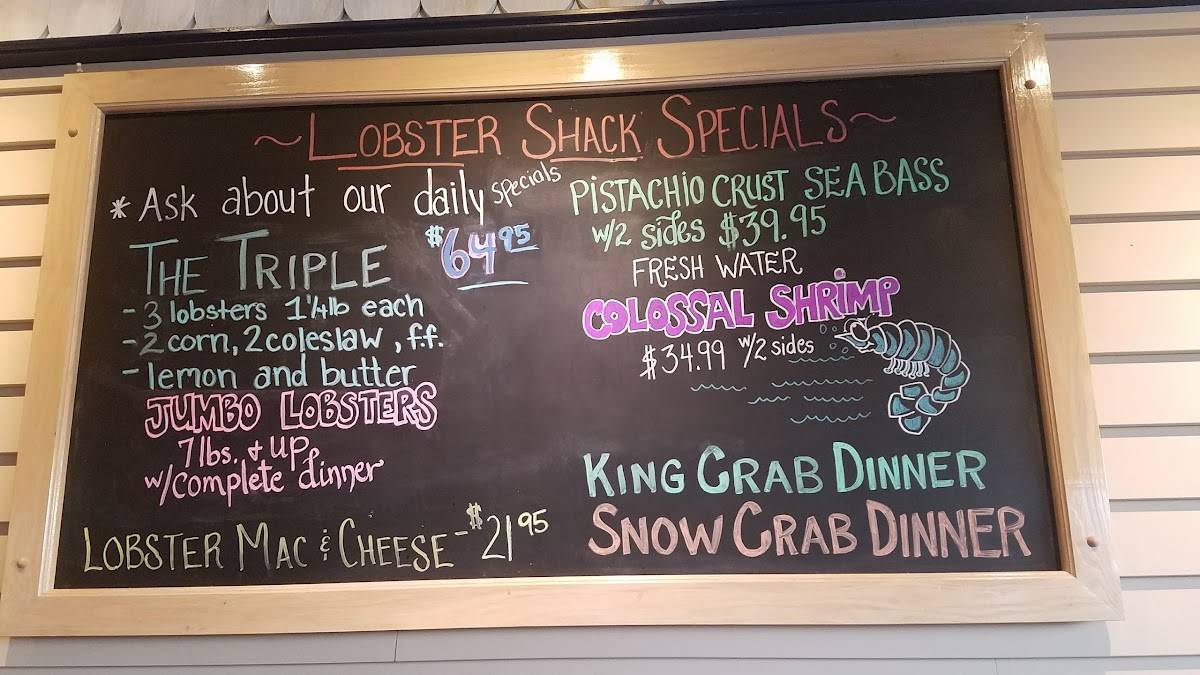 ~LOBSTER SHACK SPECIALS~
* Ask about our daily specials
THE TRIPLE $64.95
- 3 lobsters 1 1/4 lb each
- 2 corn, 2 coleslaw, f.f.
- lemon and butter
JUMBO LOBSTERS
7 lbs. & up
w/complete dinner
LOBSTER MAC & CHEESE - $21.95
PISTACHIO CRUST SEA BASS
w/2 sides $39.95
FRESH WATER
COLOSSAL SHRIMP
$34.99 w/2 sides
KING CRAB DINNER
SNOW CRAB DINNER